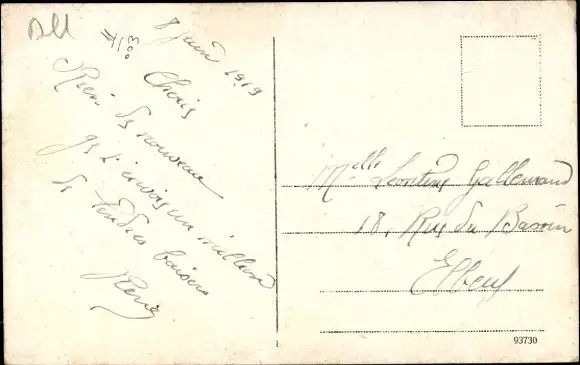 8 juin 1919
Chérie
Rien de nouveau
je t'envoie un million
de tendres baisers
René
Melle Léontine Gallemand
18, Rue du Bassin
Elbeuf
93730